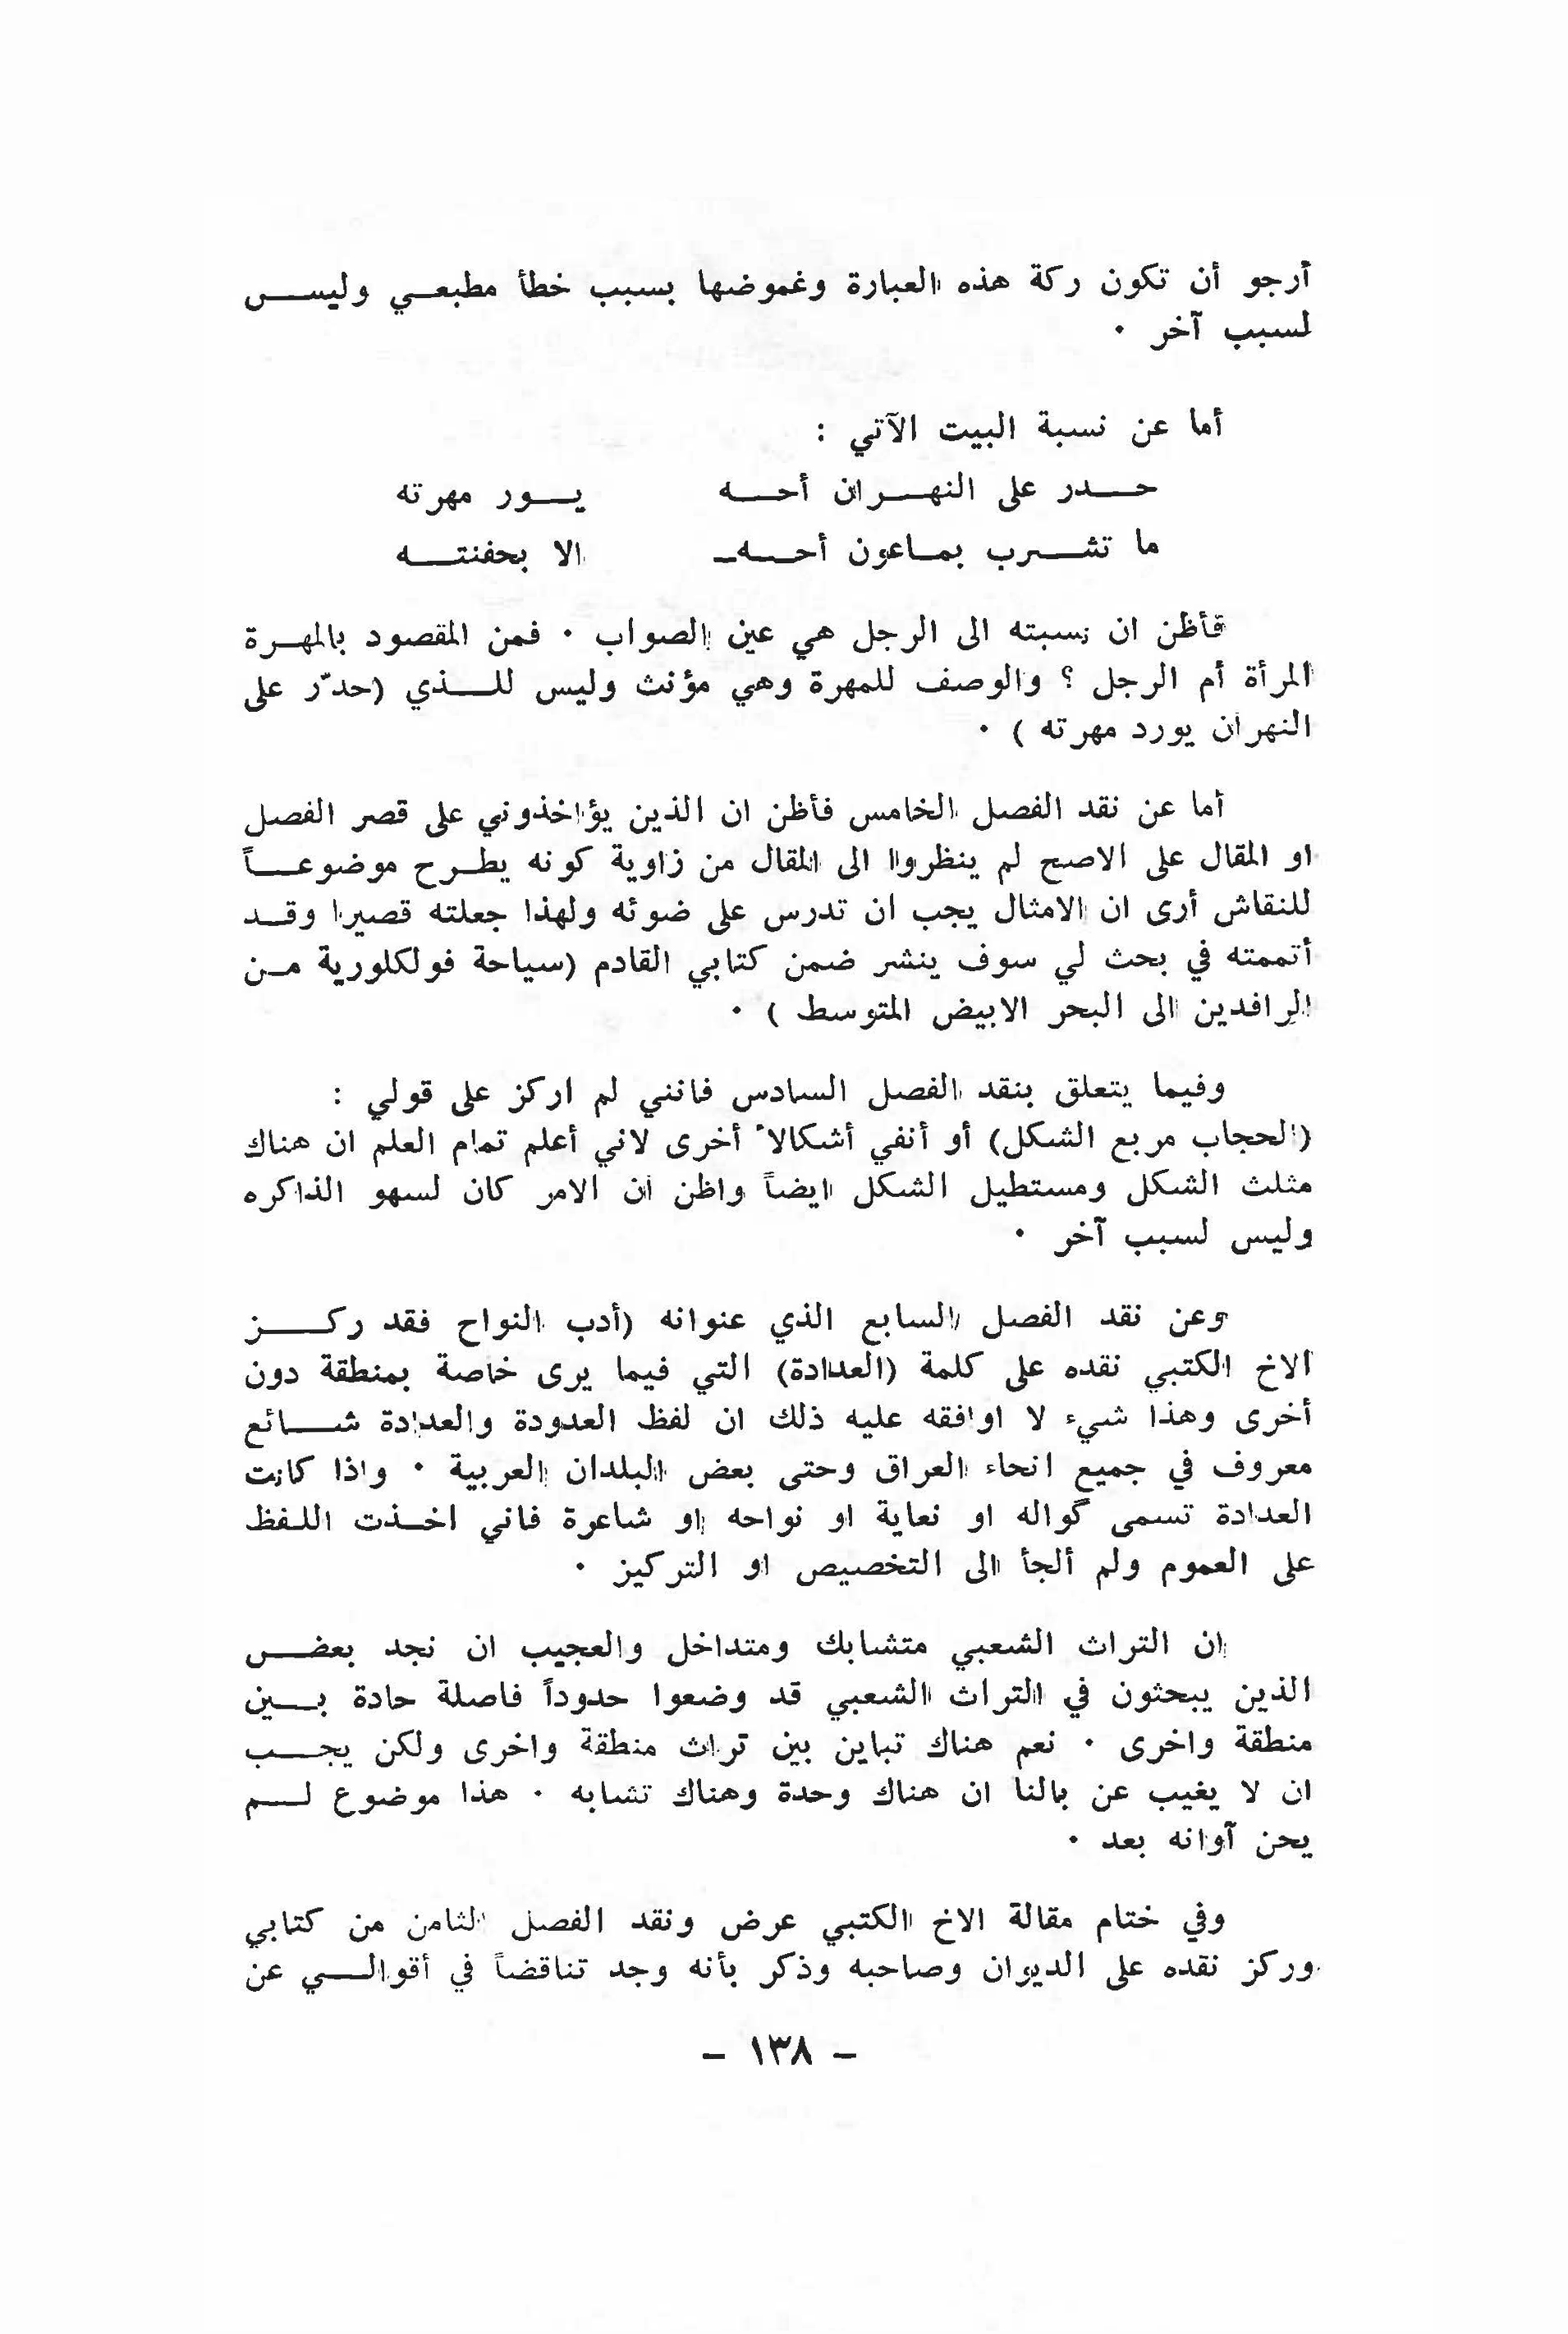 أرجو أن تكون ركة هذه العبارة وغموضها بسبب خطأ مطبعي وليس
لسبب آخر ·
أما عن نسبة البيت الآتي :
حدر على النهران أحه يور مهرته
ما تشرب بماعون أحه الا بحفنته
فأظن ان نسبته الى الرجل هي عين الصواب · فمن المقصود بالمهرة
المرأة أم الرجل ؟ والوصف للمهرة وهي مؤنث وليس للذي (حدّر على
النهران يورد مهرته ) ·
أما عن نقد الفصل الخامس فأظن ان الذين يؤاخذوني على قصر الفصل
او المقال على الاصح لم ينظروا الى المقال من زاوية كونه يطرح موضوعاً
للنقاش أرى ان الامثال يجب ان تدرس على ضوئه ولهذا جعلته قصيرا وقد
أتممته في بحث لي سوف ينشر ضمن كتابي القادم (سياحة فولكلورية من
الرافدين الى البحر الابيض المتوسط ) ·
وفيما يتعلق بنقد الفصل السادس فانني لم اركز على قولي :
(الحجاب مربع الشكل) أو أنفي أشكالاً أخرى لاني أعلم تمام العلم ان هناك
مثلث الشكل ومستطيل الشكل ايضاً واظن ان الامر كان لسهو الذاكره
وليس لسبب آخر ·
وعن نقد الفصل السابع الذي عنوانه (أدب النواح فقد ركز
الاخ الكتبي نقده على كلمة (العدادة) التي فيما يرى خاصة بمنطقة دون
أخرى وهذا شيء لا اوافقه عليه ذلك ان لفظ العدودة والعدادة شائع
معروف في جميع انحاء العراق وحتى بعض البلدان العربية · واذا كانت
العدادة تسمى گواله او نعاية او نواحه او شاعرة فاني اخذت اللفظ
على العموم ولم ألجأ الى التخصيص او التركيز ·
ان التراث الشعبي متشابك ومتداخل والعجيب ان نجد بعض
الذين يبحثون في التراث الشعبي قد وضعوا حدوداً فاصلة حادة بين
منطقة واخرى · نعم هناك تباين بين تراث منطقة واخرى ولكن يجب
ان لا يغيب عن بالنا ان هناك وحدة وهناك تشابه · هذا موضوع لم
يحن آوانه بعد ·
وفي ختام مقالة الاخ الكتبي عرض ونقد الفصل الثامن من كتابي
وركز نقده على الديوان وصاحبه وذكر بأنه وجد تناقضاً في أقوالي عن
– ١٣٨ –